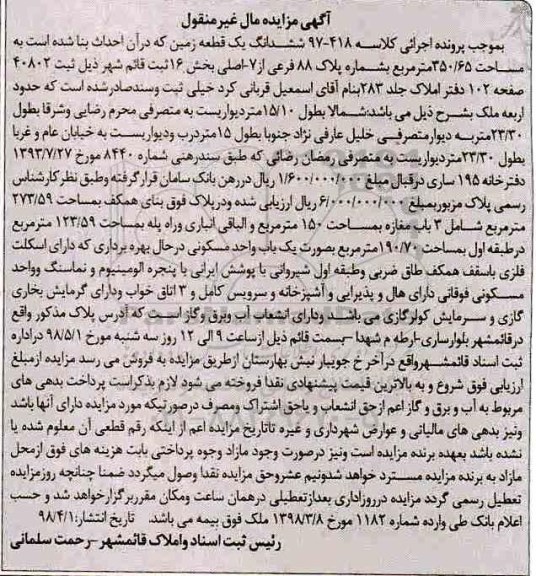 آگهی مزایده مال غیرمنقول
بموجب پرونده اجرائی کلاسه ۴۱۸-۹۷ ششدانگ یک قطعه زمین که درآن احداث بنا شده است به
مساحت ۳۵۰/۶۵مترمربع بشماره پلاک ۸۸ فرعی از۷-اصلی بخش ۱۶ثبت قائم شهر ذیل ثبت ۴۰۸۰۲
صفحه ۱۰۲ دفتر املاک جلد ۲۸۳بنام آقای اسمعیل قربانی کرد خیلی ثبت وسندصادرشده است که حدود
اربعه ملک بشرح ذیل می باشد:شمالا بطول ۱۵/۱۰متردیواریست به متصرفی محرم رضایی وشرقا بطول
۲۳/۳۰متربه دیوارمتصرفی خلیل عارفی نژاد جنوبا بطول ۱۵متردرب ودیواریست به خیابان عام و غربا
بطول ۲۳/۳۰متردیواریست به متصرفی رمضان رضائی که طبق سندرهنی شماره ۸۴۴۰ مورخ ۱۳۹۳/۷/۲۷
دفترخانه ۱۹۵ ساری درقبال مبلغ ۱/۶۰۰/۰۰۰/۰۰۰ ریال دررهن بانک سامان قرارگرفته وطبق نظرکارشناس
رسمی پلاک مزبوربمبلغ ۶/۰۰۰/۰۰۰/۰۰۰ ریال ارزیابی شده ودرپلاک فوق بنای همکف بمساحت ۲۷۳/۵۹
مترمربع شامل ۳ باب مغازه بمساحت ۱۵۰ مترمربع و الباقی انباری وراه پله بمساحت ۱۲۳/۵۹ مترمربع
درطبقه اول بمساحت ۱۹۰/۷۰مترمربع بصورت یک باب واحد مسکونی درحال بهره برداری که دارای اسکلت
فلزی باسقف همکف طاق ضربی وطبقه اول شیروانی با پوشش ایرانی با پنجره الومینیوم و نماسنگ وواحد
مسکونی فوقانی دارای هال و پذیرایی و آشپزخانه و سرویس کامل و ۳ اتاق خواب ودارای گرمایش بخاری
گازی و سرمایش کولرگازی می باشد ودارای انشعاب آب وبرق وگاز است که آدرس پلاک مذکور واقع
درقائمشهر بلوارساری-ارطه م شهدا –بسمت قائم ذیل ازساعت ۹ الی ۱۲ روز سه شنبه مورخ ۹۸/۵/۱ دراداره
ثبت اسناد قائمشهرواقع درآخر خ جویبار نبش بهارستان ازطریق مزایده به فروش می رسد مزایده ازمبلغ
ارزیابی فوق شروع و به بالاترین قیمت پیشنهادی نقدا فروخته می شود لازم بذکراست پرداخت بدهی های
مربوط به آب و برق و گاز اعم ازحق انشعاب و یاحق اشتراک ومصرف درصورتیکه مورد مزایده دارای آنها باشد
ونیز بدهی های مالیاتی و عوارض شهرداری و غیره تاتاریخ مزایده اعم از اینکه رقم قطعی آن معلوم شده یا
نشده باشد بعهده برنده مزایده است ونیز درصورت وجود مازاد وجوه پرداختی بابت هزینه های فوق ازمحل
مازاد به برنده مزایده مسترد خواهد شدونیم عشروحق مزایده نقدا وصول میگردد ضمنا چنانچه روزمزایده
تعطیل رسمی گردد مزایده درروزاداری بعدازتعطیلی درهمان ساعت ومکان مقرربرگزارخواهد شد و حسب
اعلام بانک طی وارده شماره ۱۱۸۲ مورخ ۱۳۹۸/۳/۸ ملک فوق بیمه می باشد. تاریخ انتشار:۹۸/۴/۱
رئیس ثبت اسناد واملاک قائمشهر –رحمت سلمانی